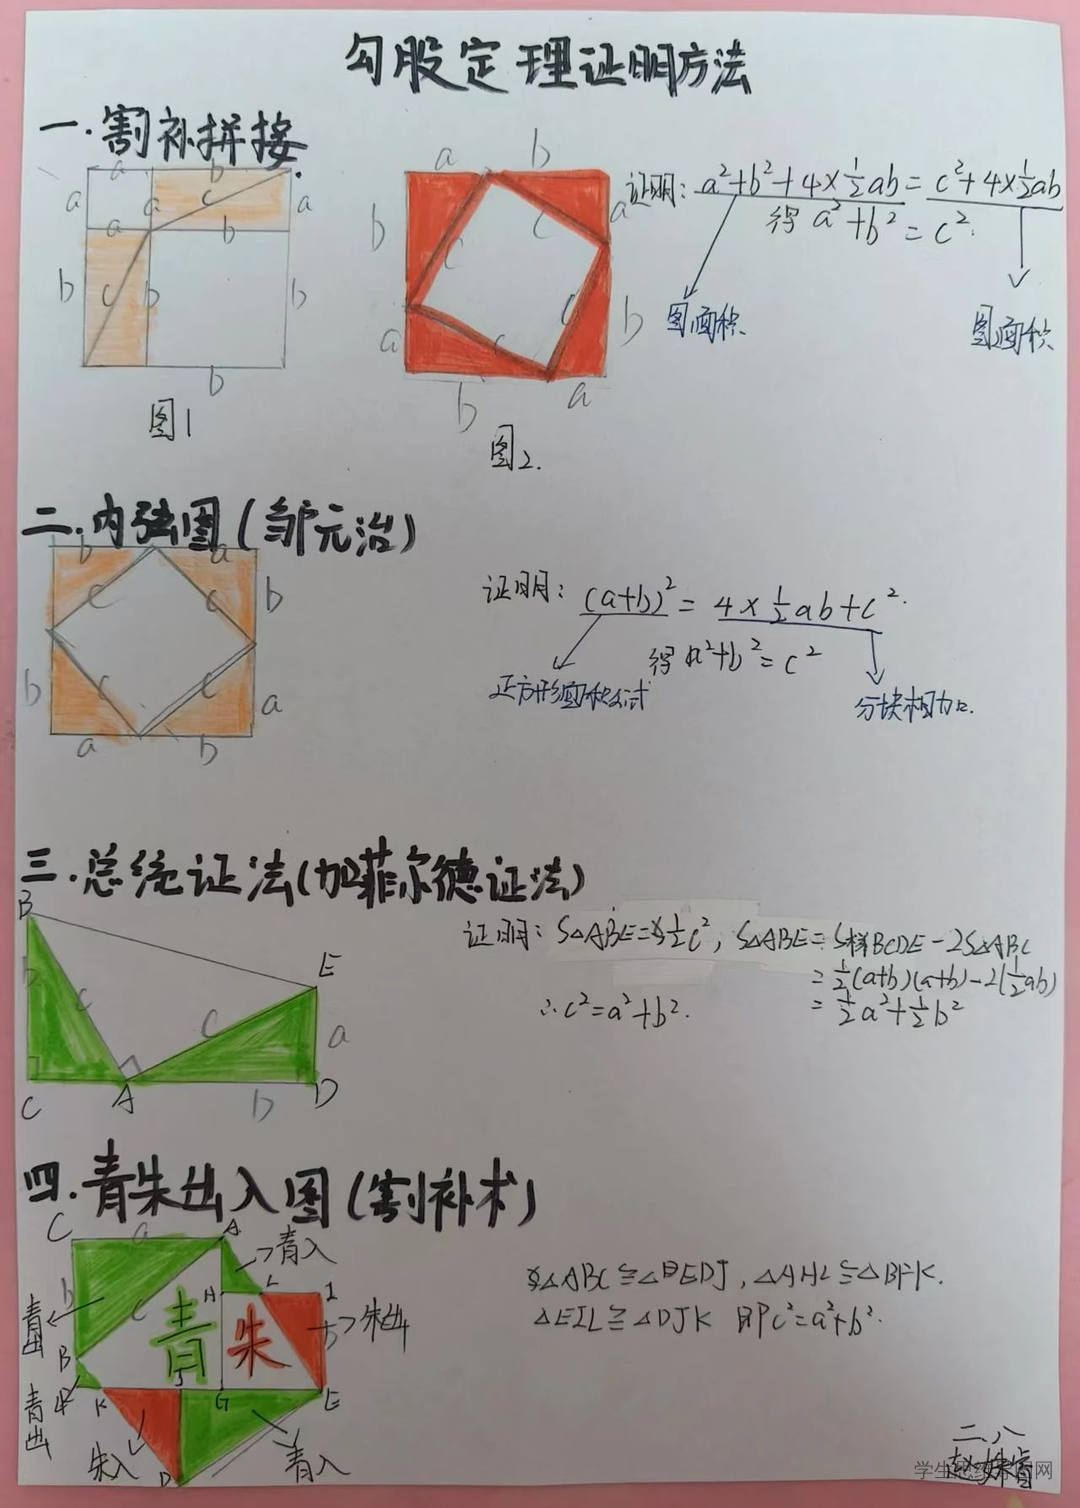 勾股定理证明方法
一.割补拼接.
a b
a a c a
a b
b c b b
b
图1
a b
b c c a
a c c b
b a
图2.
证明: a²+b²+4×½ab=c²+4×½ab
得 a²+b²=c².
图1面积
图2面积
二.内弦图(邹元治)
b a
c c b
b c c a
a b
证明: (a+b)²=4×½ab+c².
得 a²+b²=c²
正方形面积公式
分块相加.
三.总统证法(加菲尔德证法)
B
b c E
c a
C A b D
证明: S△ABE=½c², S△ABE=S梯BCDE-2S△ABC
=½(a+b)(a+b)-2(½ab)
∴c²=a²+b².
=½a²+½b²
四.青朱出入图(割补术)
C a A
青入
b c H L I
青出
青 朱
朱出
B
F K J G E
青出
朱入
D
青入
△ABC≌△EDJ, △AHL≌△BFK.
△EIL≌△DJK 即c²=a²+b².
二、八